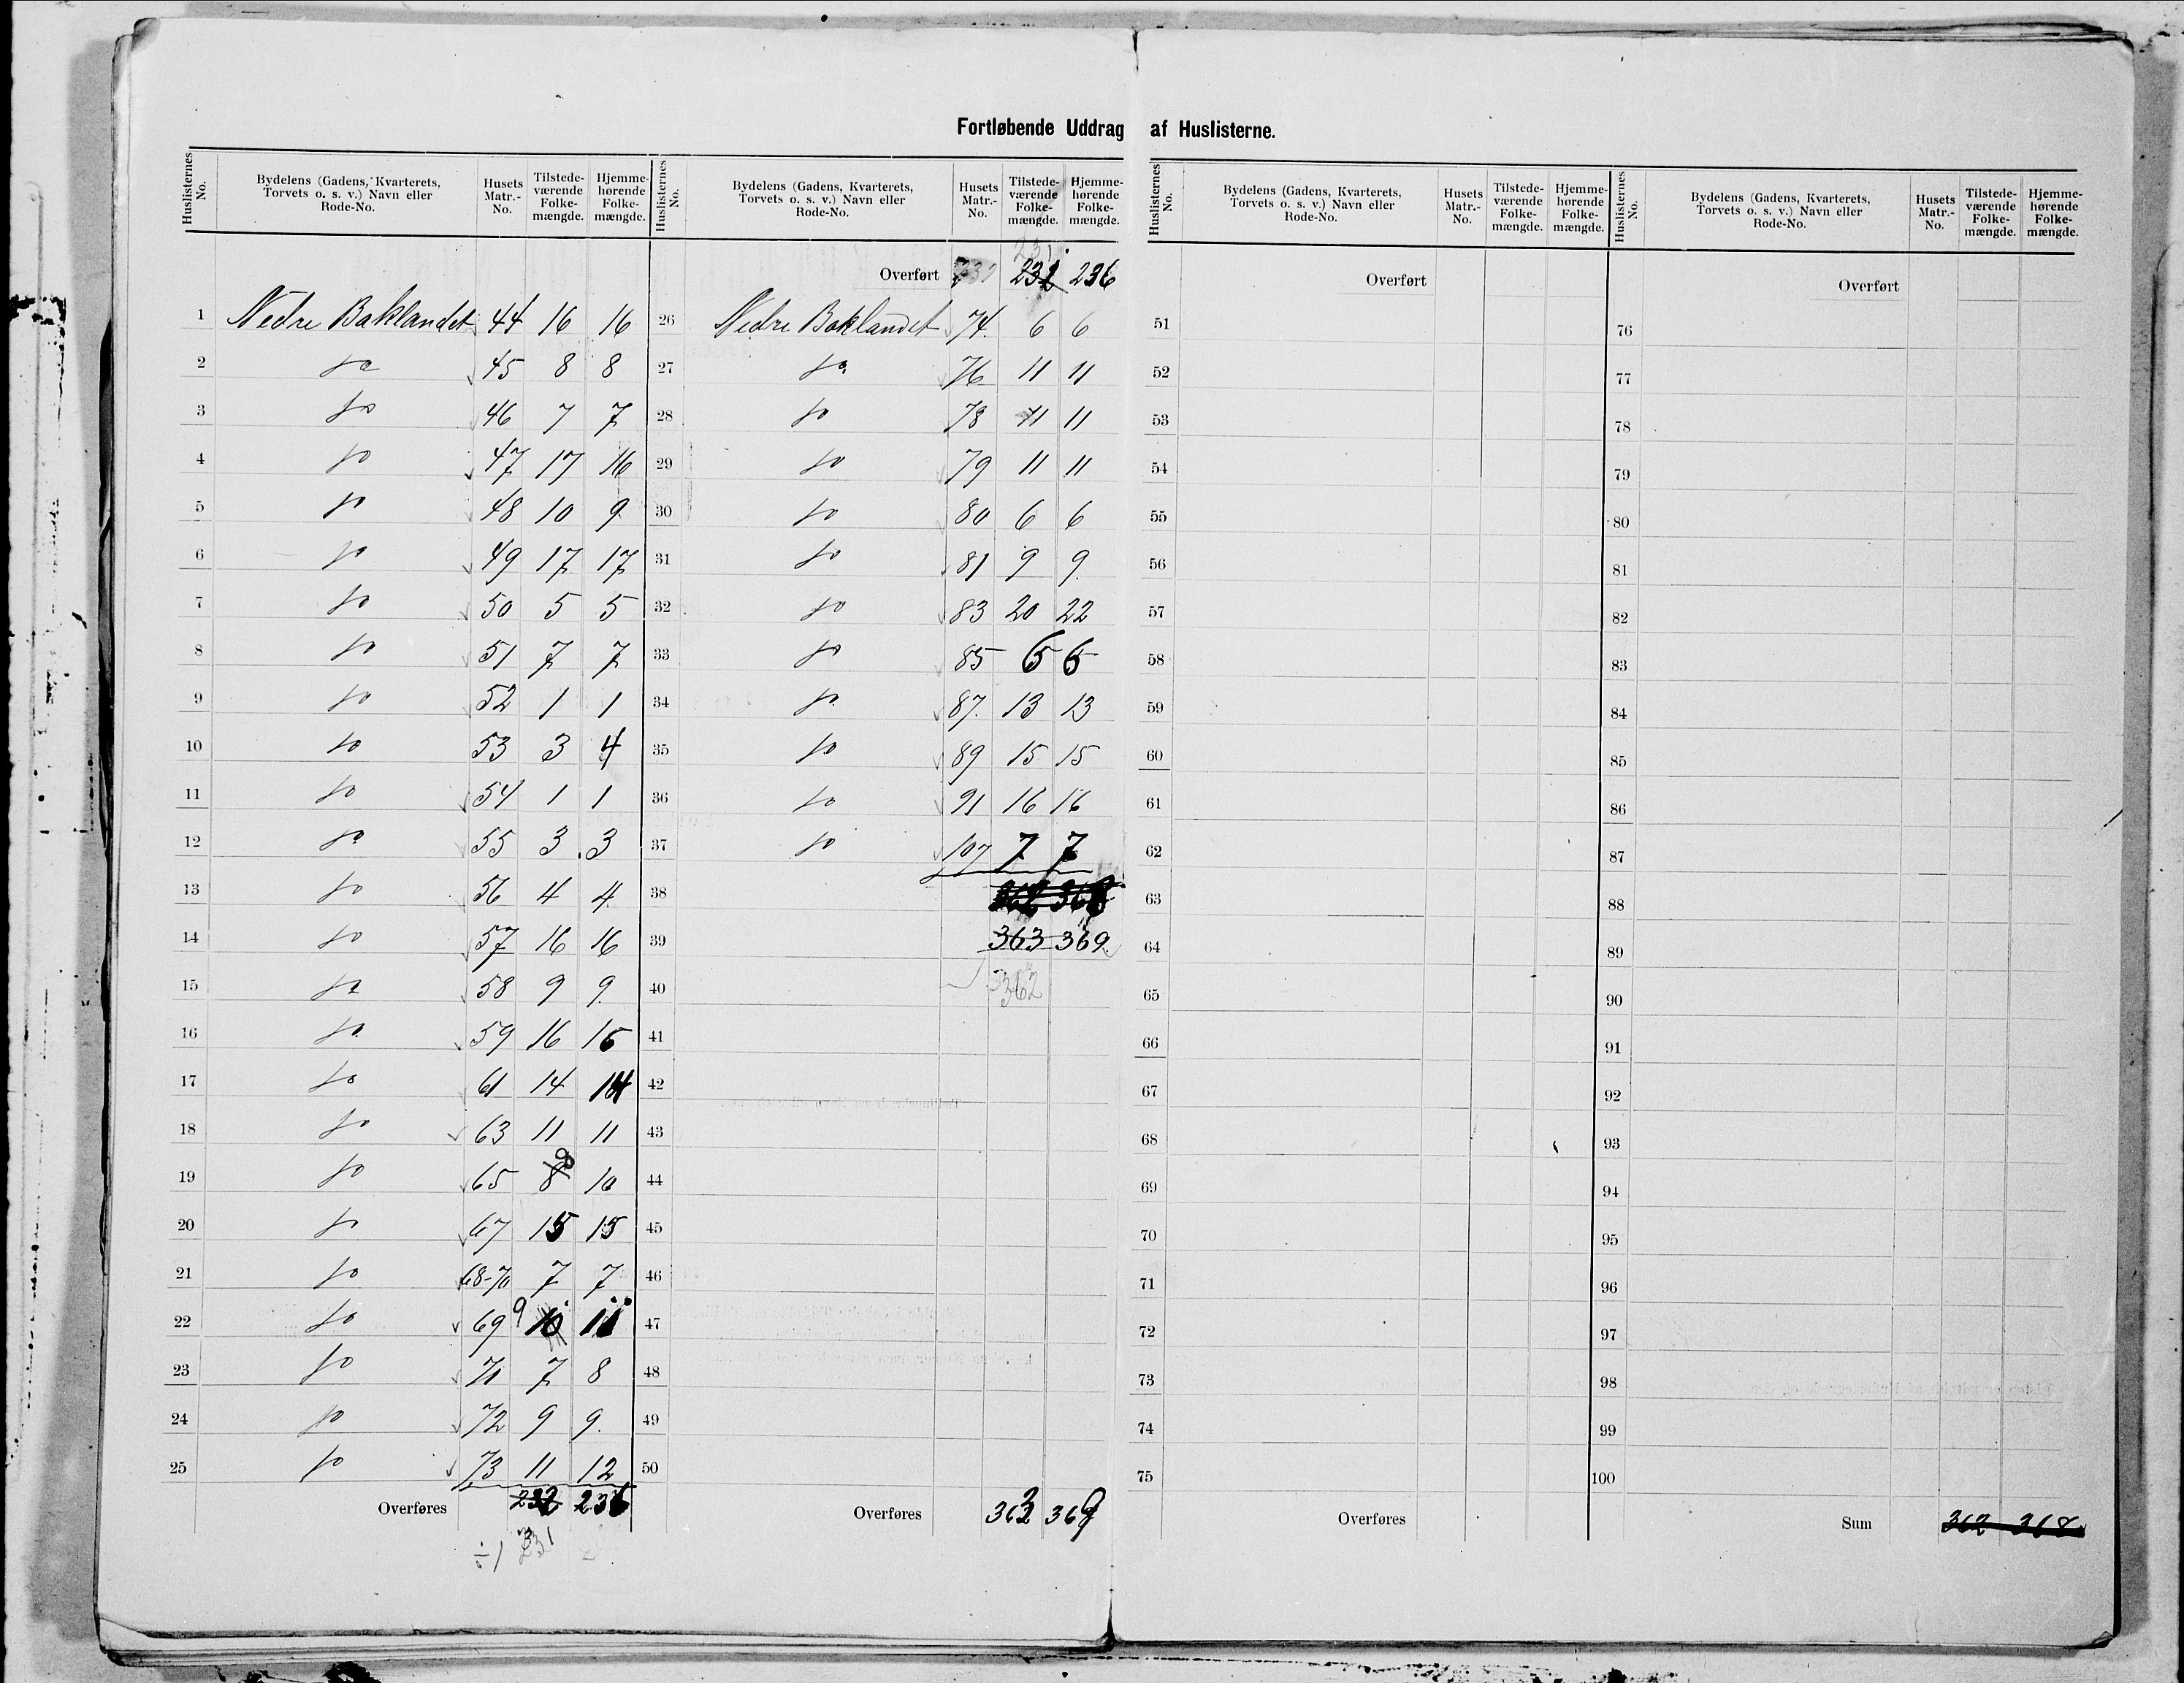 Fortløbende Uddrag af Huslisterne.
Huslisternes No. Bydelens (Gadens, Kvarterets, Torvets o. s. v.) Navn eller Rode-No. Husets Matr.-No. Tilstede-værende Folke-mængde. Hjemme-hørende Folke-mængde.
1 Nedre Baklandet 44 16 16
2 do 45 8 8
3 do 46 7 7
4 do 47 17 16
5 do 48 10 9
6 do 49 17 17
7 do 50 5 5
8 do 51 7 7
9 do 52 1 1
10 do 53 3 4
11 do 54 1 1
12 do 55 3 3
13 do 56 4 4
14 do 57 16 16
15 do 58 9 9
16 do 59 16 15
17 do 61 14 14
18 do 63 11 11
19 do 65 8 9 10
20 do 67 15 15
21 do 68-70 7 7
22 do 69 9 10 11
23 do 71 7 8
24 do 72 9 9
25 do 73 11 12
Overføres 232 236
÷1 231
Huslisternes No. Bydelens (Gadens, Kvarterets, Torvets o. s. v.) Navn eller Rode-No. Husets Matr.-No. Tilstede-værende Folke-mængde. Hjemme-hørende Folke-mængde.
231
Overført 232 236
26 Nedre Baklandet 74 6 6
27 do 76 11 11
28 do 78 11 11
29 do 79 11 11
30 do 80 6 6
31 do 81 9 9
32 do 83 20 22
33 do 85 6 6
34 do 87 13 13
35 do 89 15 15
36 do 91 16 16
37 do 107 7 7
38 362 368
39 363 369
40 362
41
42
43
44
45
46
47
48
49
50
Overføres 363 369
Huslisternes No. Bydelens (Gadens, Kvarterets, Torvets o. s. v.) Navn eller Rode-No. Husets Matr.-No. Tilstede-værende Folke-mængde. Hjemme-hørende Folke-mængde.
Overført
51
52
53
54
55
56
57
58
59
60
61
62
63
64
65
66
67
68
69
70
71
72
73
74
75
Overføres
Huslisternes No. Bydelens (Gadens, Kvarterets, Torvets o. s. v.) Navn eller Rode-No. Husets Matr.-No. Tilstede-værende Folke-mængde. Hjemme-hørende Folke-mængde.
Overført
76
77
78
79
80
81
82
83
84
85
86
87
88
89
90
91
92
93
94
95
96
97
98
99
100
Sum 362 368